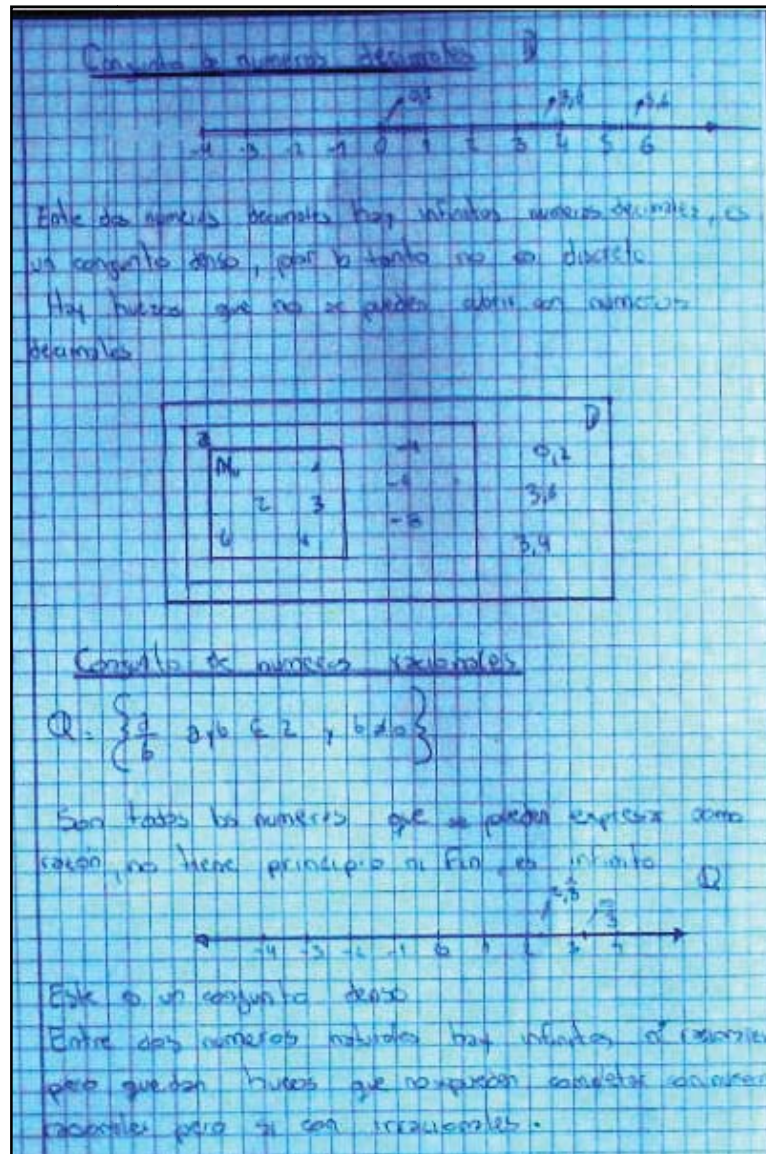 Conjunto de numeros decimales D
0,2 3,4 5,6
-4 -3 -2 -1 0 1 2 3 4 5 6
Entre dos numeros decimales hay infinitos numeros decimales, es
un conjunto denso, por lo tanto no es discreto.
Hay huecos que no se pueden cubrir con numeros
decimales
D
Z -4 0,2
N 1
2 3 3,6
-8
6 3,4
Conjunto de numeros racionales
Q = { a/b a,b ∈ Z y b ≠ 0 }
Son todos los numeros que se pueden expresar como
razón, no tiene principio ni fin, es infinito
Q
-4 -3 -2 -1 0 1 2 3 4
Este es un conjunto denso
Entre dos numeros naturales hay infinitos nº racionales
pero quedan huecos que no se pueden completar con numeros
racionales pero si con irracionales.